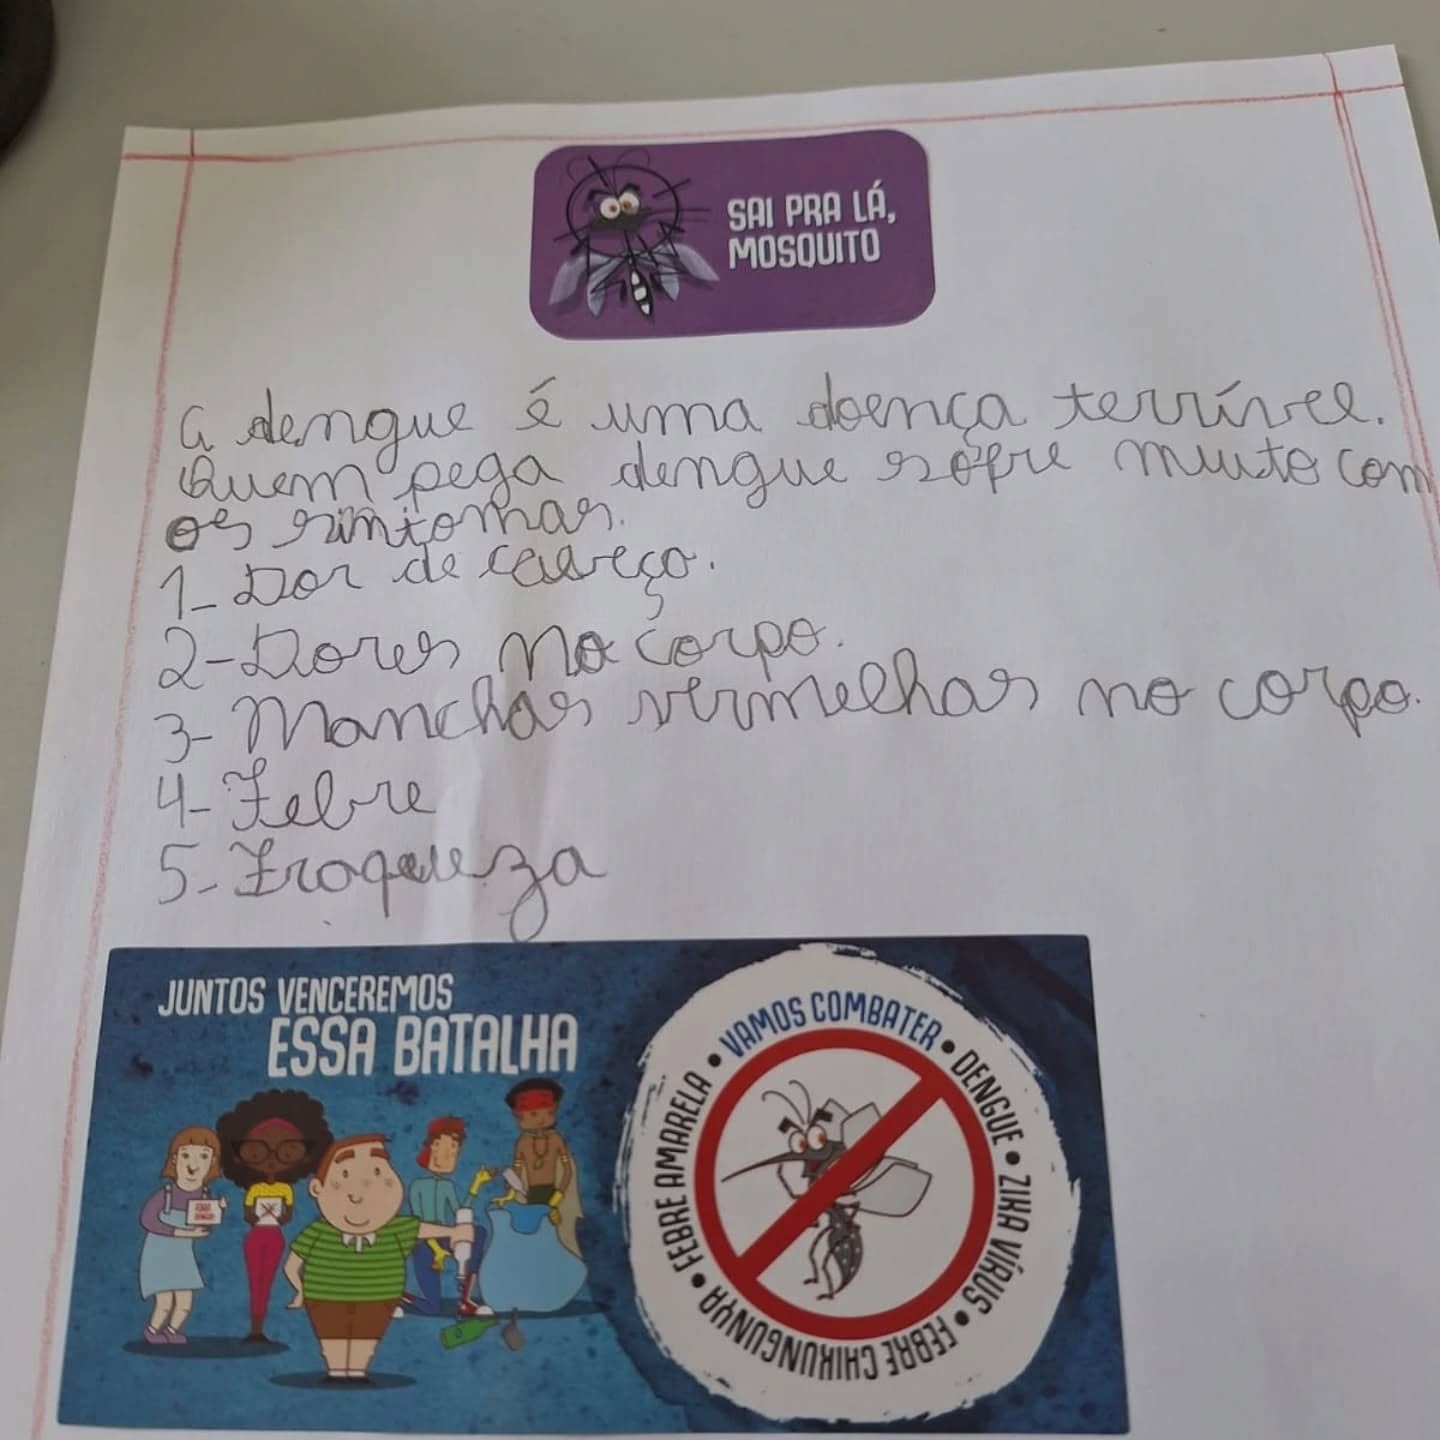 SAI PRA LÁ,
MOSQUITO
A dengue é uma doença terrível.
Quem pega dengue sofre muito com
os sintomas.
1- Dor de cabeça.
2- Dores no corpo.
3- Manchas vermelhas no corpo.
4- Febre
5- Fraqueza
JUNTOS VENCEREMOS
ESSA BATALHA
VAMOS COMBATER • DENGUE • ZIKA VÍRUS • FEBRE CHIKUNGUNYA • FEBRE AMARELA •